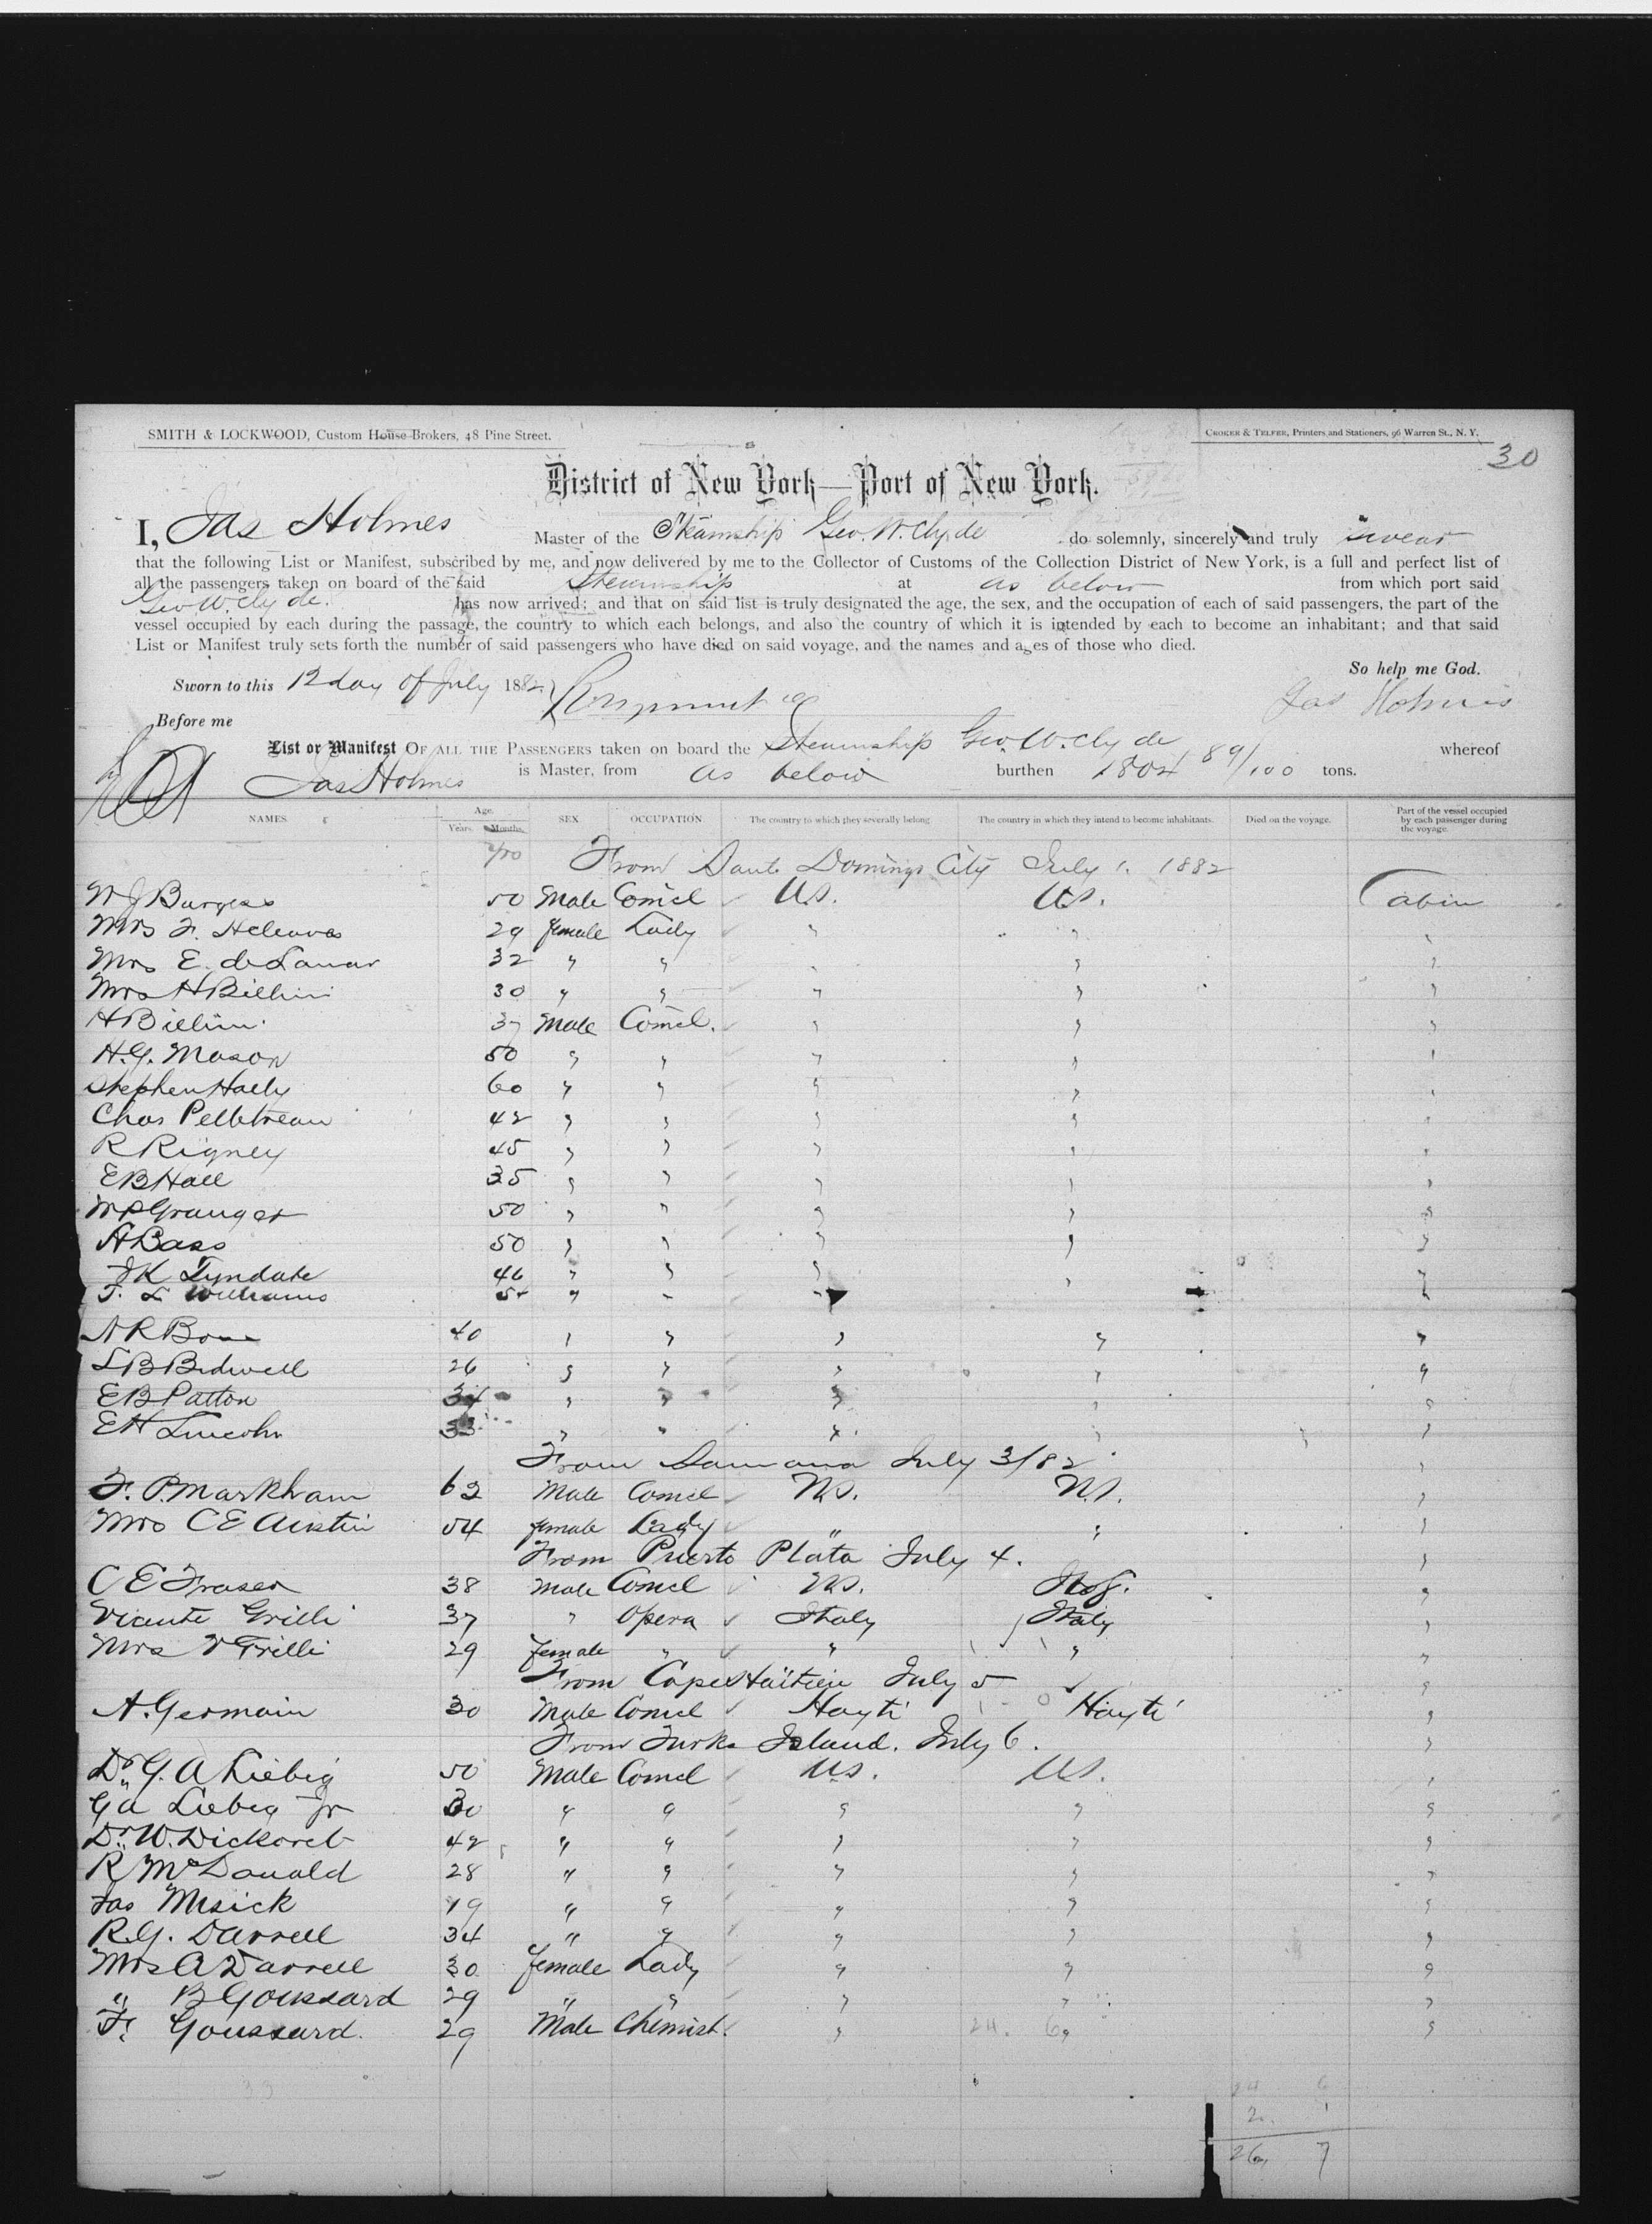 SMITH & LOCKWOOD, Custom House Brokers, 48 Pine Street.
CROKER & TELFER, Printers and Stationers, 96 Warren St., N. Y.
30
District of New York—Port of New York.
I, Jas Holmes Master of the Steamship Geo. W. Clyde do solemnly, sincerely and truly swear
that the following List or Manifest, subscribed by me, and now delivered by me to the Collector of Customs of the Collection District of New York, is a full and perfect list of
all the passengers taken on board of the said Steamship at as below from which port said
Geo W. Clyde. has now arrived; and that on said list is truly designated the age, the sex, and the occupation of each of said passengers, the part of the
vessel occupied by each during the passage, the country to which each belongs, and also the country of which it is intended by each to become an inhabitant; and that said
List or Manifest truly sets forth the number of said passengers who have died on said voyage, and the names and ages of those who died.
So help me God.
Sworn to this 12 day of July 1882.
Jas Holmes
Before me
List or Manifest OF ALL THE PASSENGERS taken on board the Steamship Geo. W. Clyde whereof
Jas Holmes is Master, from as below burthen 1804 89/100 tons.
NAMES. Age. Years. Months. SEX. OCCUPATION. The country to which they severally belong. The country in which they intend to become inhabitants. Died on the voyage. Part of the vessel occupied by each passenger during the voyage.
From Santo Domingo City July 1. 1882
W J Burgess 50 Male Comcl U.S. U.S. Cabin
Mrs F. 29 female Lady " " "
Mrs E. de Lamar 32 " " " " "
Mrs H Billini 30 " " " " "
H Billini 37 Male Comcl. " " "
H. G. Mason 50 " " " " "
Stephen Hally 60 " " " " "
Chas Pelletreau 42 " " " " "
R Rigney 45 " " " " "
E B Hall 35 " " " " "
W P Granger 50 " " " " "
A Bass 50 " " " " "
J K Tyndale 46 " " " " "
F. L Williams " " "
A R 40 " " " " "
L B Bidwell 26 " " " " "
E B Patton 34 " " " " "
E H Lincoln 33 " " " " "
From Samana July 3/82
F. P. Markham 62 Male Comcl U.S. U.S. "
Mrs C E Austin 54 female Lady " " "
From Puerto Plata July 4.
C E Fraser 38 Male Comcl U.S. "
Vicente Grilli 37 " Opera Italy Italy "
Mrs V Grilli 29 female " " " "
From Cape Haitien July 5
A. Germain 30 Male Comcl Hayti Hayti "
From Turks Island. July 6.
Dr. G. A Liebig 50 Male Comcl U.S. U.S. "
G A Liebig Jr 30 " " " " "
Dr. W. 42 " " " " "
R McDonald 28 " " " " "
Jas Misick 19 " " " " "
R. G. Darrell 34 " " " " "
Mrs A Darrell 30 female Lady " " "
" B Goussard 29 " " " " "
F. Goussard. 29 Male Chemist. " " "
24. 6
33
24 6
2. 1
26, 7